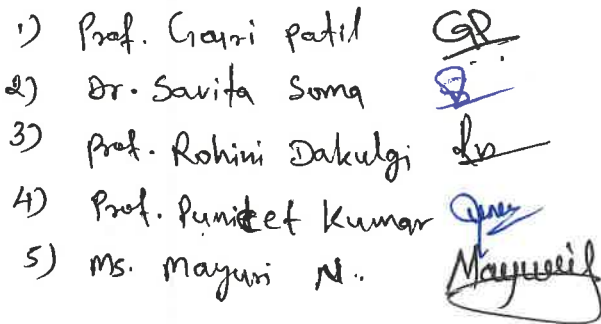 1) Prof. Gauri patil GP
2) Dr. Savita Soma
3) Prof. Rohini Dakulgi
4) Prof. Puneet Kumar
5) Ms. Mayuri N. Mayuri